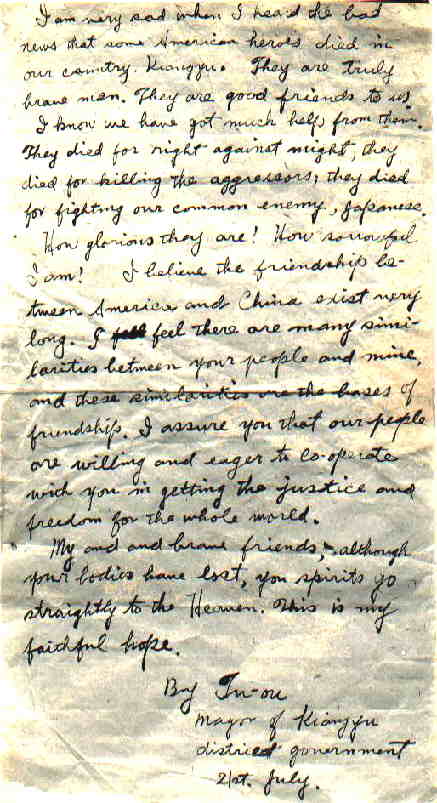 I am very sad when I heard the bad
news that some American heroes died in
our country. Kiangyu. They are truly
brave men. They are good friends to us.
I know we have got much help from them.
They died for right against might, they
died for killing the aggressors; they died
for fighting our common enemy, Japanese.
How glorious they are! How sorrowful
I am! I believe the friendship be-
tween America and China exist very
long. I feel there are many simi-
larities between your people and mine,
and these similarities are the bases of
friendship. I assure you that our people
are willing and eager to co-operate
with you in getting the justice and
freedom for the whole world.
My and brave friends, although
your bodies have lost, you spirits go
straightly to the Heaven. This is my
faithful hope.
By Tu-ou
Mayor of Kiangyu
district government
21st. July.